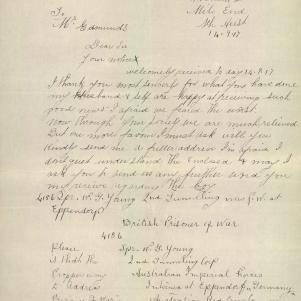 Mile End
Sth Aust
To,
14.9.17
Mr Edmunds
Dear Sir
Your notice
welcomely received to day 14.9.17
I thank you most sincerely for what you have done
my Husband & self are happy at receiving such
good news I afraid we feared the worst
now through your brief we are much relieved
But one more favour I must ask will you
kindly send me a fuller address I'm afraid I
don't quite understand the enclosed & may I
ask you to send us any further word you
may receive regarding the boy
4186 Spr. W. G. Young 2nd Tunnelling was first at
Eppendorf
British Prisoner of War
4186
Please Spr. W. G. Young
is this the 2nd Tunelling Coy
Proper way Australian Imperial Forces
to address Interned at Eppendorf in Germany